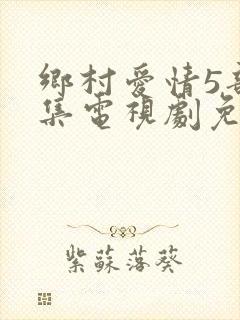 鄉村愛情5
集電視劇免
紫蘇落葵